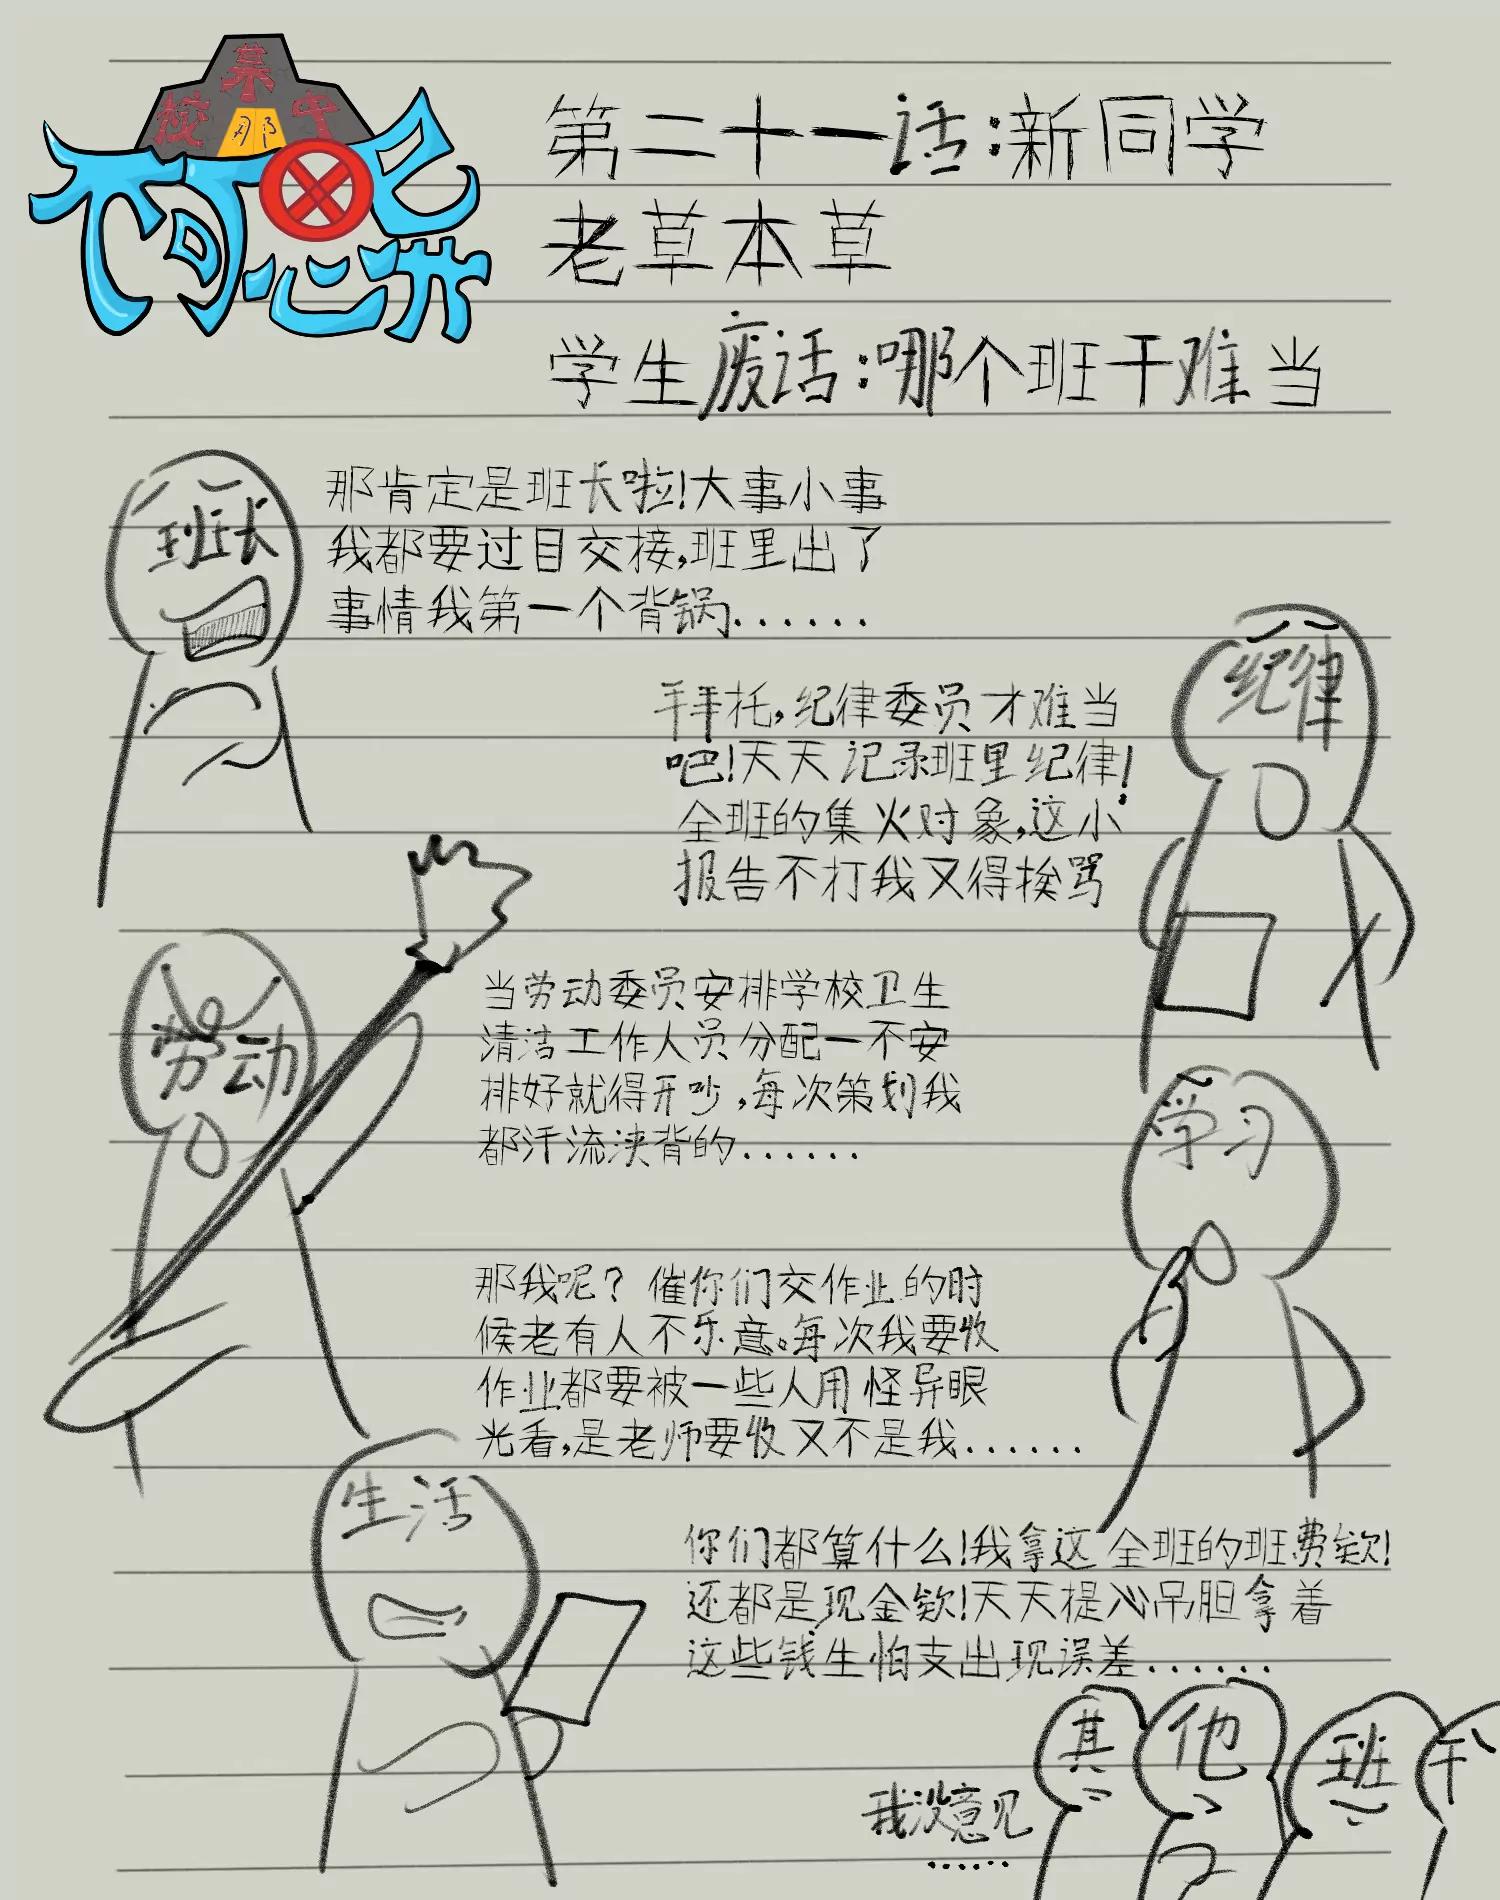 某
校 中
那
不可思异
第二十一话:新同学
老草本草
学生废话:哪个班干难当
班长
那肯定是班长啦!大事小事
我都要过目交接,班里出了
事情我第一个背锅......
纪律
拜托,纪律委员才难当
吧!天天记录班里纪律!
全班的集火对象,这小
报告不打我又得挨骂
劳动
当劳动委员安排学校卫生
清洁工作人员分配一不安
排好就得开吵,每次策划我
都汗流浃背的......
学习
那我呢?催你们交作业的时
候老有人不乐意。每次我要收
作业都要被一些人用怪异眼
光看,是老师要收又不是我......
生活
你们都算什么!我拿这全班的班费欸!
还都是现金欸!天天提心吊胆拿着
这些钱生怕支出现误差......
其他班干
我没意见
......